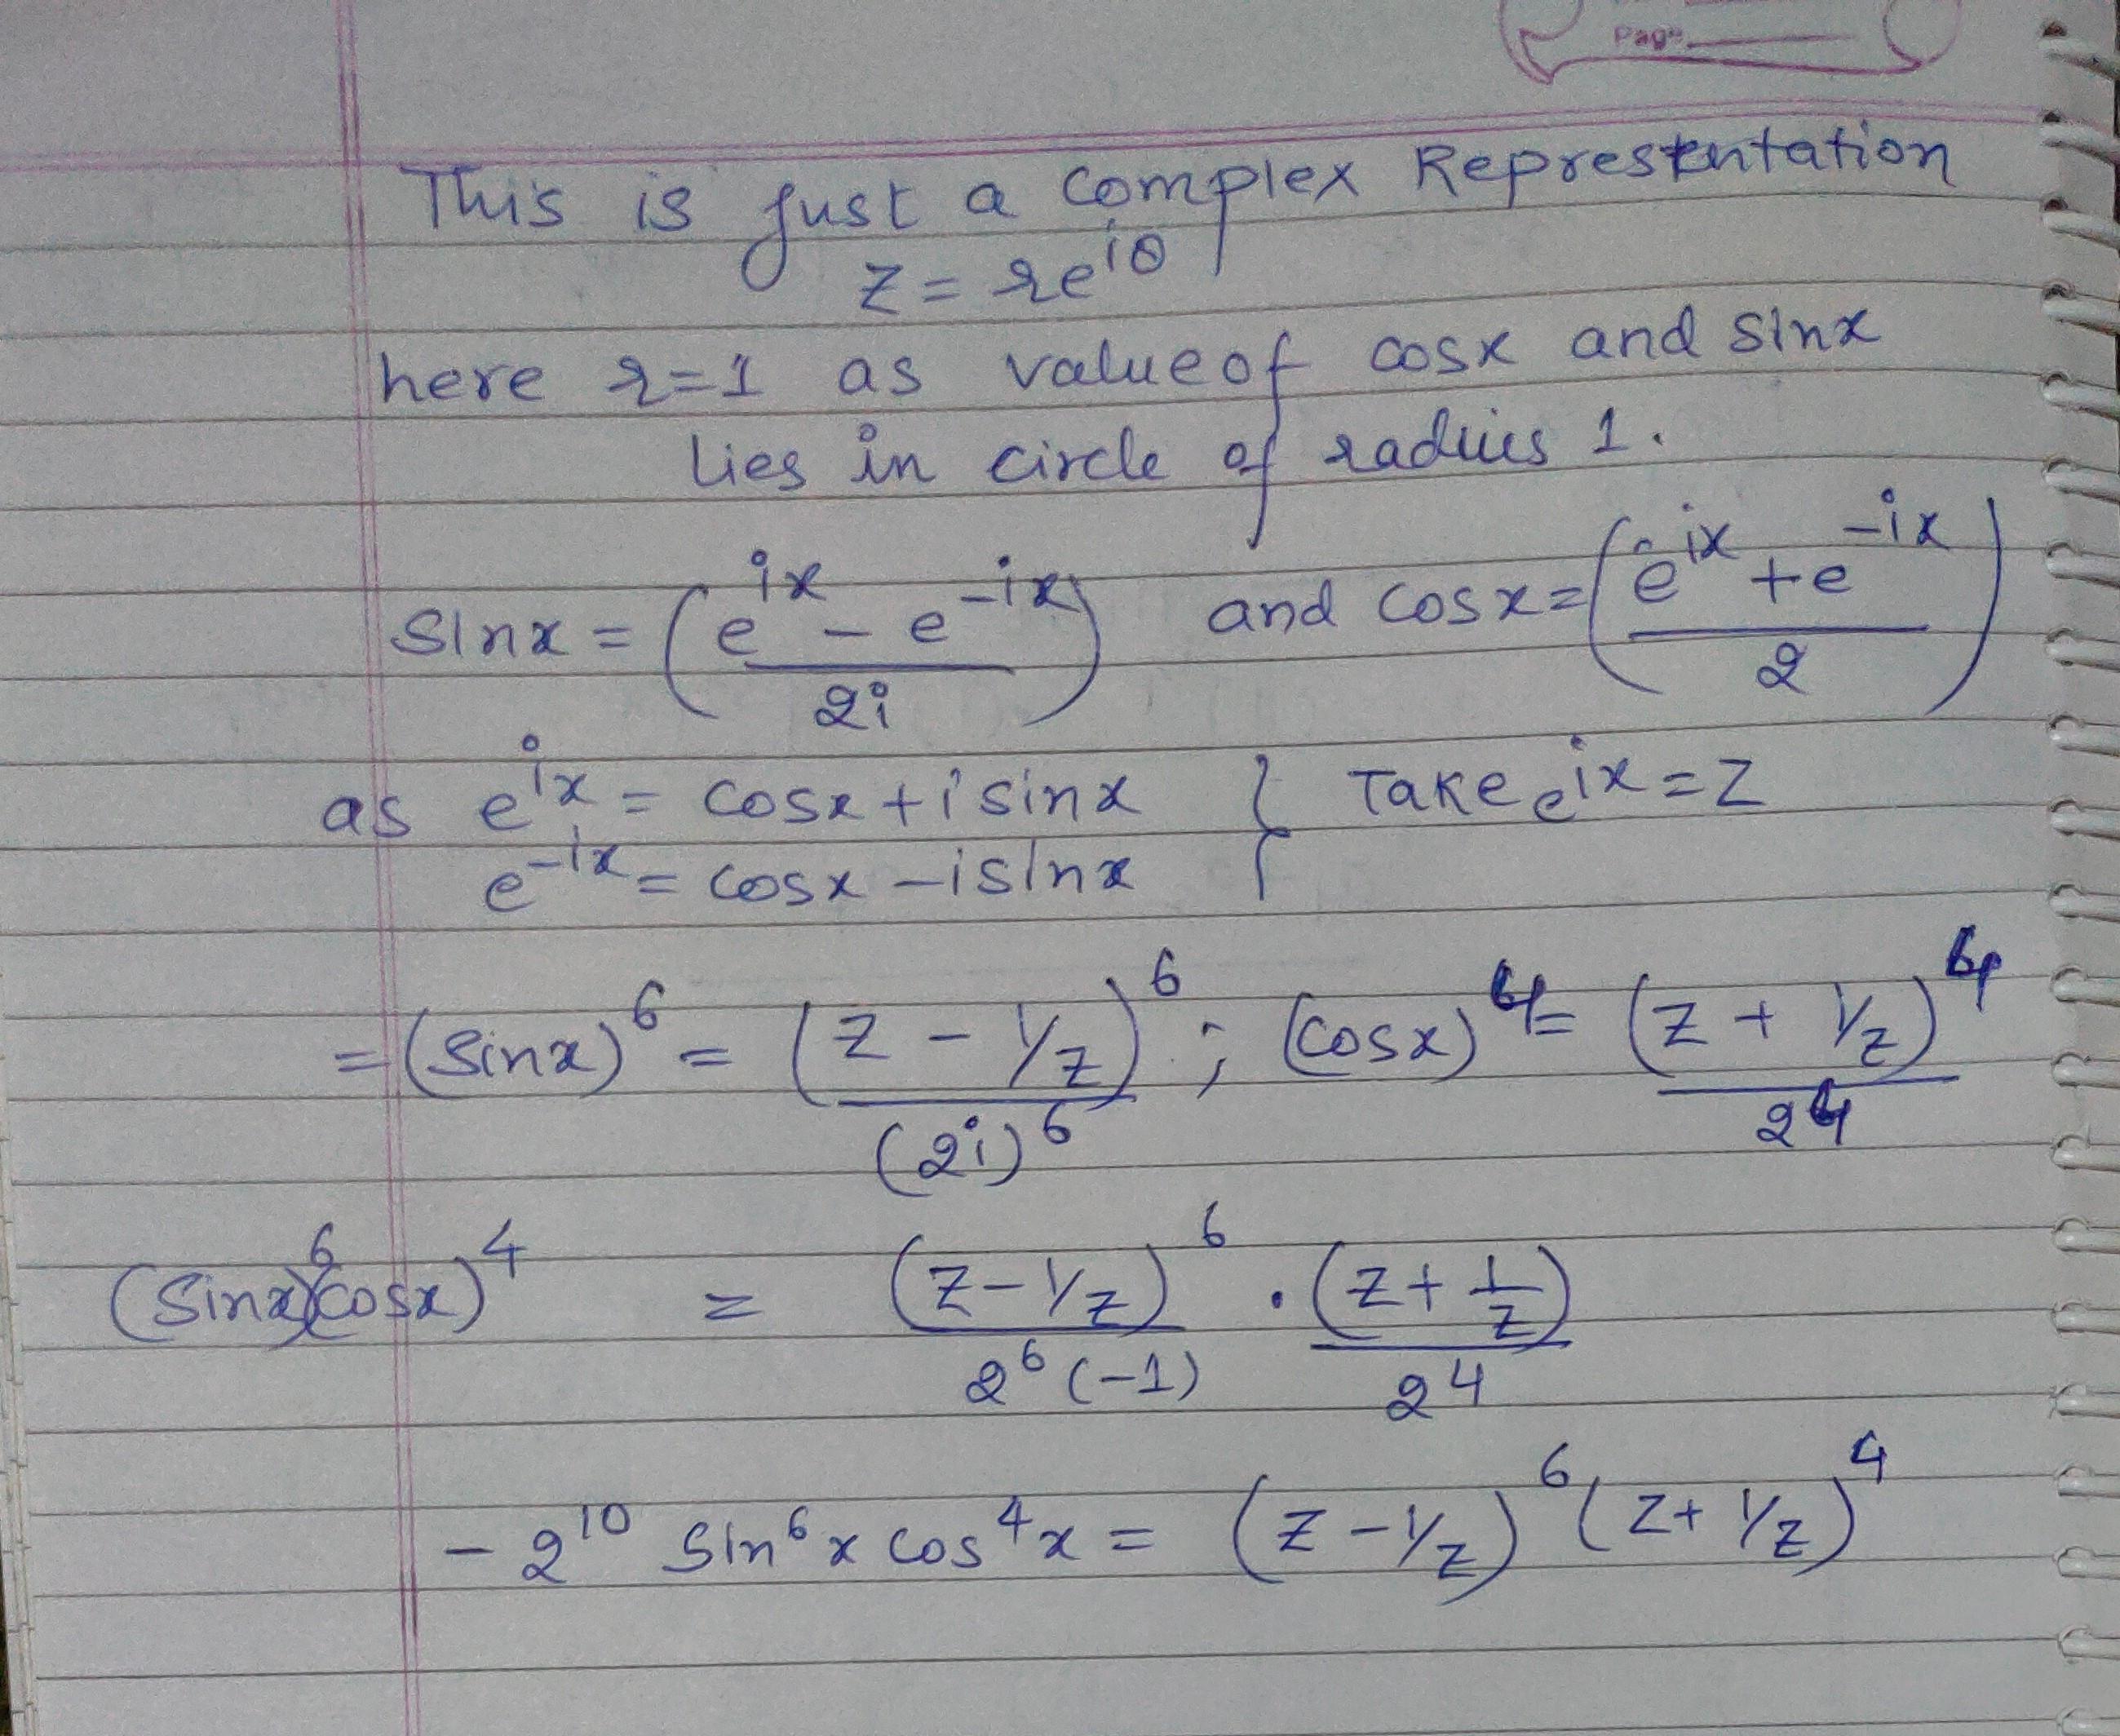 Page
This is just a complex Representation
z = re^iθ
here r=1 as value of cosx and sinx
lies in circle of radius 1.
sinx = (e^ix - e^-ix / 2i) and cosx = (e^ix + e^-ix / 2)
as e^ix = cosx + isinx } Take e^ix = z
e^-ix = cosx - isinx
= (sinx)^6 = (z - 1/z)^6 / (2i)^6 ; (cosx)^4 = (z + 1/z)^4 / 2^4
(sinx)^6(cosx)^4 = (z - 1/z)^6 / 2^6(-1) . (z + 1/z) / 2^4
-2^10 sin^6x cos^4x = (z - 1/z)^6 (z + 1/z)^4